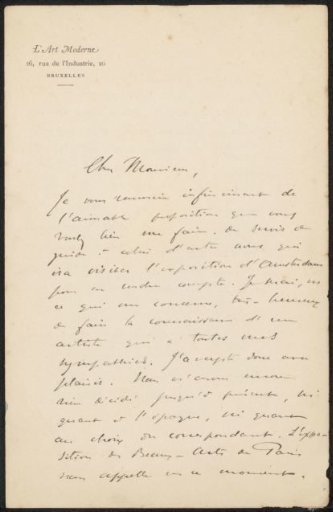 L'Art Moderne
26, rue de l'Industrie, 26
BRUXELLES
Cher Monsieur,
Je vous remercie infiniment de
l'aimable proposition que vous
voulez bien me faire de servir de
guide à celui d'entre nous qui
ira visiter l'exposition d'Amsterdam
pour en rendre compte. Je serai, en
ce qui me concerne, très heureux
de faire la connaissance d'un
artiste qui a toutes mes
sympathies. J'accepte donc avec
plaisir. Nous n'avons encore
rien décidé jusqu'à présent, ni
quant à l'époque, ni quant
au choix du correspondant. L'expo-
sition des Beaux-Arts de Paris
nous appelle en ce moment.